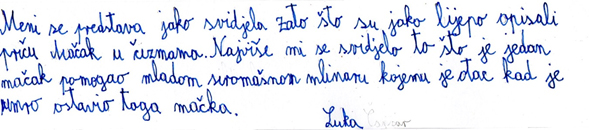 Meni se predstava jako svidjela zato što su jako lijepo opisali
priču Mačak u čizmama. Najviše mi se svidjelo to što je jedan
mačak pomogao mladom siromašnom mlinaru kojemu je otac kad je
umro ostavio toga mačka.
Luka